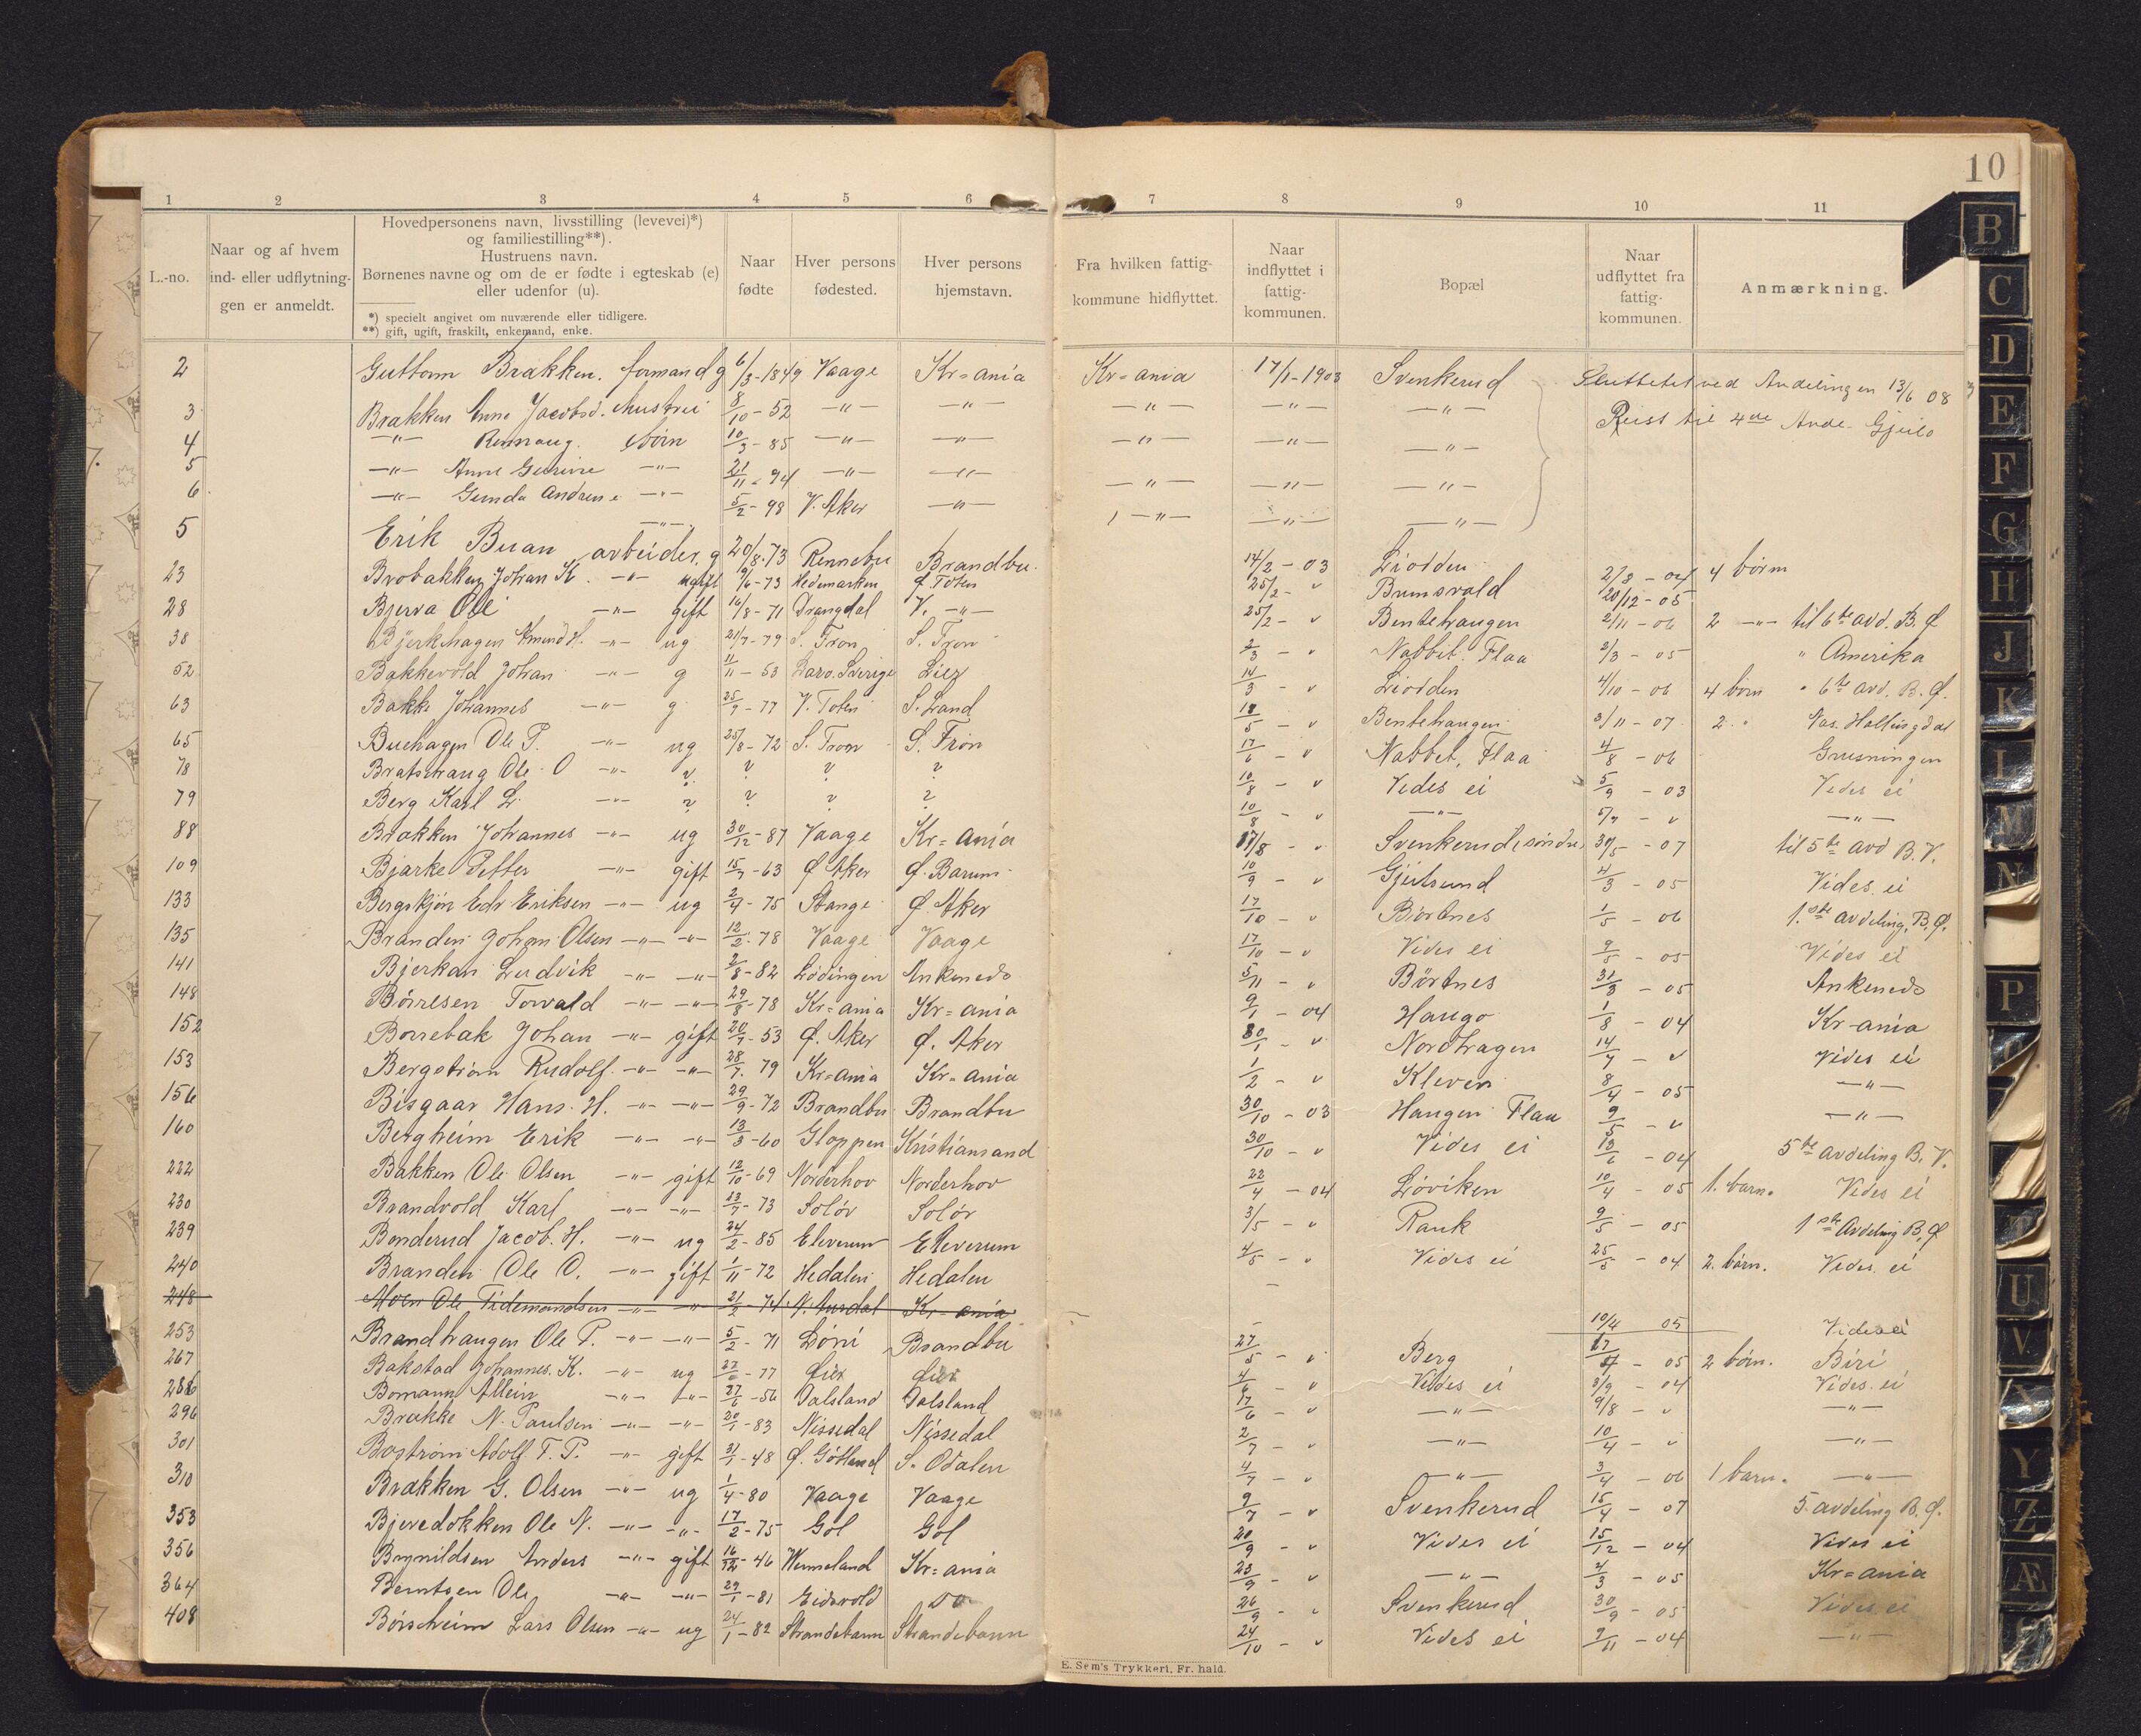 10
1 2 3 4 5 6 7 8 9 10 11
L.-no.
Naar og af hvem
ind- eller udflytning-
gen er anmeldt.
Hovedpersonens navn, livsstilling (levevei)*)
og familiestilling**).
Hustruens navn.
Børnenes navne og om de er fødte i egteskab (e)
eller udenfor (u).
*) specielt angivet om nuværende eller tidligere.
**) gift, ugift, fraskilt, enkemand, enke.
Naar
fødte
Hver persons
fødested.
Hver persons
hjemstavn.
Fra hvilken fattig-
kommune hidflyttet.
Naar
indflyttet i
fattig-
kommunen.
Bopæl
Naar
udflyttet fra
fattig-
kommunen.
Anmærkning.
2 Guttorm Brakken. formand g 6/3-1849 Vaage Kr=ania Kr=ania 17/1-1903 Svenkerud Sluttet ved Avdelingen 13/6 08
3 Brakken Anne Jacobsd. hustru 8/10-52 -"- -"- -"- -"- -"- Reist til 4de Avde. Gjeilo
4 -"- Rennaug. børn 10/3-85 -"- -"- -"- -"- -"-
5 -"- Anne Gurine -"- 21/11-94 -"- -"- -"- -"- -"-
6 -"- Gunda Andrine -"- 5/2-98 V. Aker -"- -"- -"- -"-
5 Erik Buan arbeider, g 20/8-73 Rennebu Brandbu 14/2-03 Liodden 2/3-04 4 børn
23 Brobakken Johan K. -"- ugift 9/6-73 Hedemarken Ø Toten 25/2- " Bumsvald 20/12-05
28 Bjerva Ole -"- gift 16/8-71 Drangdal V. -"- 25/2- " Bentehaugen 2/11-06 2 -"- til 6te avd. B.Ø
38 Bjerkehagen Amund H. -"- ug 21/7-79 S. Fron S. Fron 2/3- " Nabbet. Flaa 2/3-05 " Amerika
52 Bakkevold Johan -"- g 11/11-53 Larv. Sverige Lier 14/3- " Liodden 4/10-06 4 børn " 6te avd. B.Ø.
63 Bakke Johannes -"- g 25/9-77 V. Toten S. Land 18/5- " Bentehaugen 3/11-07 2 " Nas. Hallingdal
65 Buehagen Ole P. -"- ug 25/8-72 S. Fron S. Fron 17/6- " Nabbet, Flaa 4/8-06 Grusningen
78 Bratshaug Ole O -"- ? ? ? ? 10/8- " Vides ei 5/9-03 Vides ei
79 Berg Karl L. -"- ? ? ? ? 10/8- " -"- 5/9- " -"-
88 Brakken Johannes -"- ug 30/12-87 Vaage Kr=ania 17/8- " Svenkerud søndre 30/5-07 til 5te avd B.V.
109 Bjarke Petter -"- gift 15/7-63 Ø Aker Ø. Barum 10/9- " Gjeilrund 4/3-05 Vides ei
133 Bergskjøn Edv Eriksen -"- ug 2/4-75 Stange Ø. Aker 17/10- " Børtnes 1/5-06 1.ste avdeling, B.Ø.
135 Branden Johan Olsen -"- -"- 12/2-78 Vaage Vaage 17/10- " Vides ei 9/5-05 Vides ei
141 Bjerkan Ludvik -"- -"- 2/8-82 Lødingen Ankeneds 5/11- " Børtnes 31/3-05 Ankeneds
148 Børresen Torvald -"- -"- 29/8-78 Kr=ania Kr=ania 9/1-04 Haugo 1/8-04 Kr-ania
152 Borrebak Johan -"- gift 20/7-53 Ø. Aker Ø. Aker 30/1- " Nordhagen 14/7- " Vides ei
153 Bergstrøm Rudolf -"- -"- 28/7-79 Kr=ania Kr=ania 1/2- " Kleven 8/4-05 -"-
156 Bisgaar Hans H. -"- -"- 29/9-72 Brandbu Brandbu 30/10-03 Haugen Flaa 9/5- " -"-
160 Bergheim Erik -"- -"- 13/3-60 Gloppen Kristiansand 30/10- " Vides ei 13/6-04 5te avdeling B.V.
222 Bakken Ole Olsen -"- gift 12/10-69 Norderhov Norderhov 22/4-04 Løviken 10/4-05 1. barn. Vides ei
230 Brandvold Karl -"- -"- 23/7-73 Solør Solør 3/5- " Rank 9/5-05 1ste Avdeling B.Ø
239 Bonderud Jacob. H. -"- ug 24/2-85 Elverum Elverum 4/5- " Vides ei 25/5-04 2. børn. Vides ei
240 Branden Ole O. -"- gift 1/11-72 Hedalen Hedalen
248 Moen Ole Tidemandsen -"- -"- 21/2-74 N. Aurdal Kr-ania 10/4 05 Vides ei
253 Brandhaugen Ole P. -"- -"- 5/2-71 Løni Brandbu 27/5- " Berg -05 2 børn. Biri
267 Bakstad Johannes. K. -"- ug -77 Lier Lier 4/6- " Vides ei 8/9-04 Vides ei
286 Bomann Allein -"- -"- 27/6-56 Dalsland Dalsland 17/6- " -"- 9/8- " -"-
296 Brakke N. Paulsen -"- -"- 20/1-83 Nissedal Nissedal 2/7- " -"- 10/4- " -"-
301 Bostrøm Adolf T. P. -"- gift 31/1-48 Ø. Götland S. Odalen 4/7- " -"- 3/4-06 1 barn. -"-
310 Brakken G. Olsen -"- ug 1/4-80 Vaage Vaage 9/7- " Svenkerud 15/4-07 5. avdeling B.Ø.
353 Bjeredokken Ole N. -"- -"- 17/2-75 Gol Gol 20/9- " Vides ei 15/12-04 Vides ei
356 Brynildsen Anders -"- gift 16/12-46 Wermeland Kr=ania 23/9- " -"- 2/3-05 Kr=ania
364 Berntsen Ole -"- -"- 29/1-81 Eidsvold Do 26/9- " Svenkerud 30/9-05 Vides ei
408 Børscheim Lars Olsen -"- ug 24/1-82 Strandebarm Strandebarm 24/10- " Vides ei 7/11-04 -"-
E. Sem's Trykkeri, Fr. hald.
B
C
D
E
F
G
H
J
K
L
M
N
P
U
V
X
Y
Z
Æ